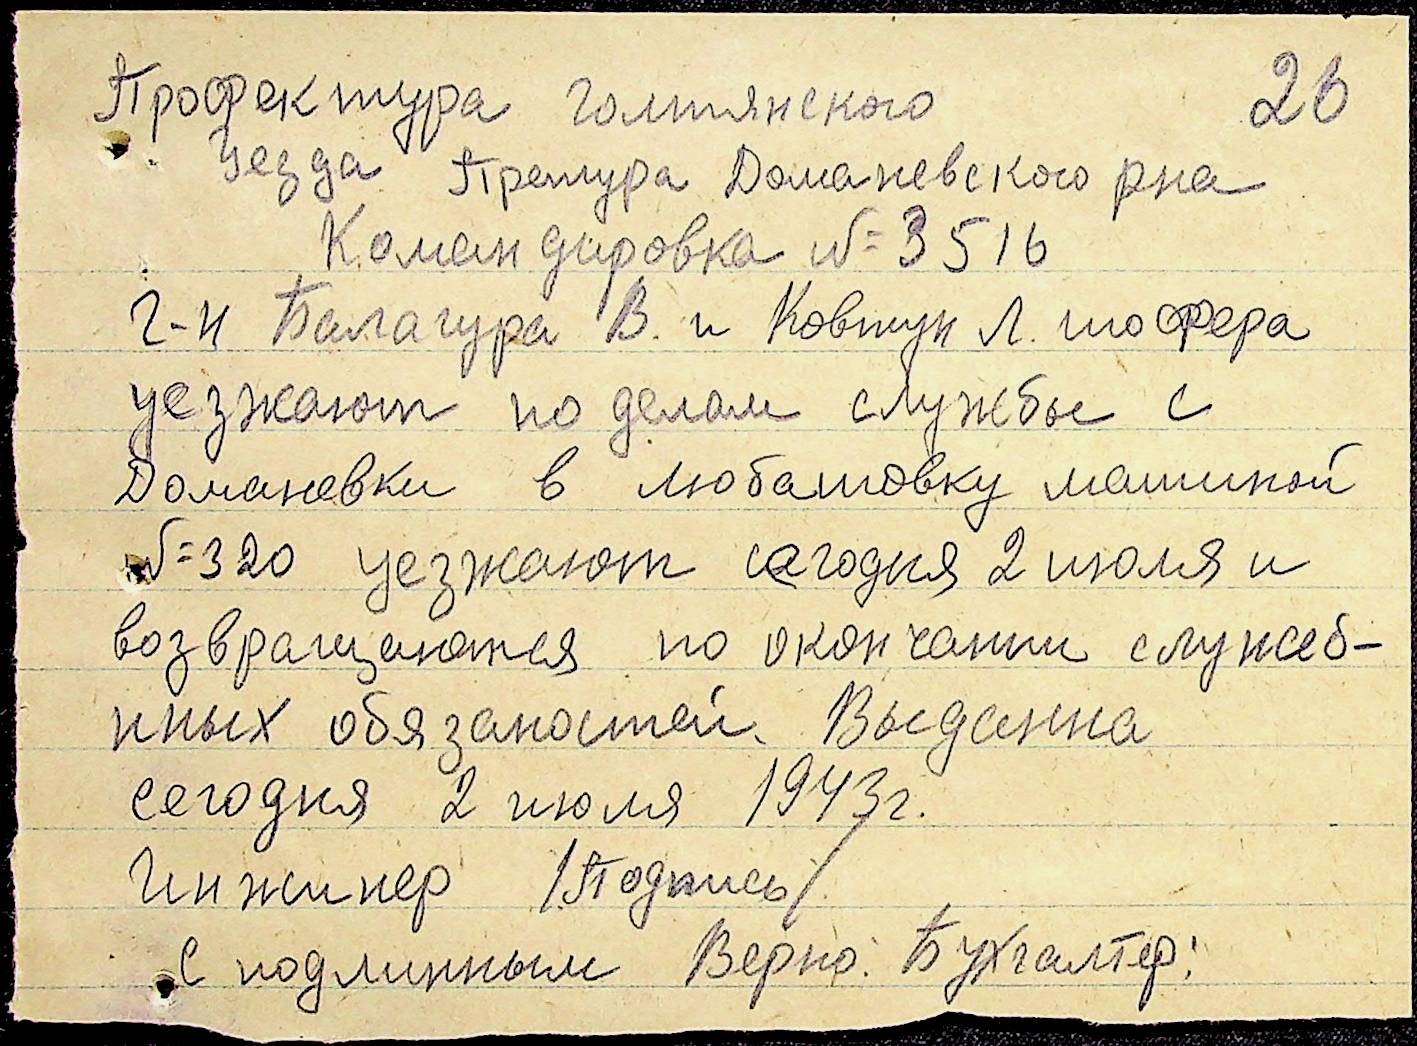 Профектура голтянского 26
Уезда Претура Доманевского рна
Командировка №=3516
Г-н Балагура В. и Ковтун Л. шофера
уезжают по делам службы с
Доманевки в Любашовку машиной
№=320 уезжают сегодня 2 июля и
возвращаются по окончании служеб-
нных обязаностей. Выданна
сегодня 2 июля 1943г.
Инженер /Подпись/
С подлинным Верно: Бухгалтер: